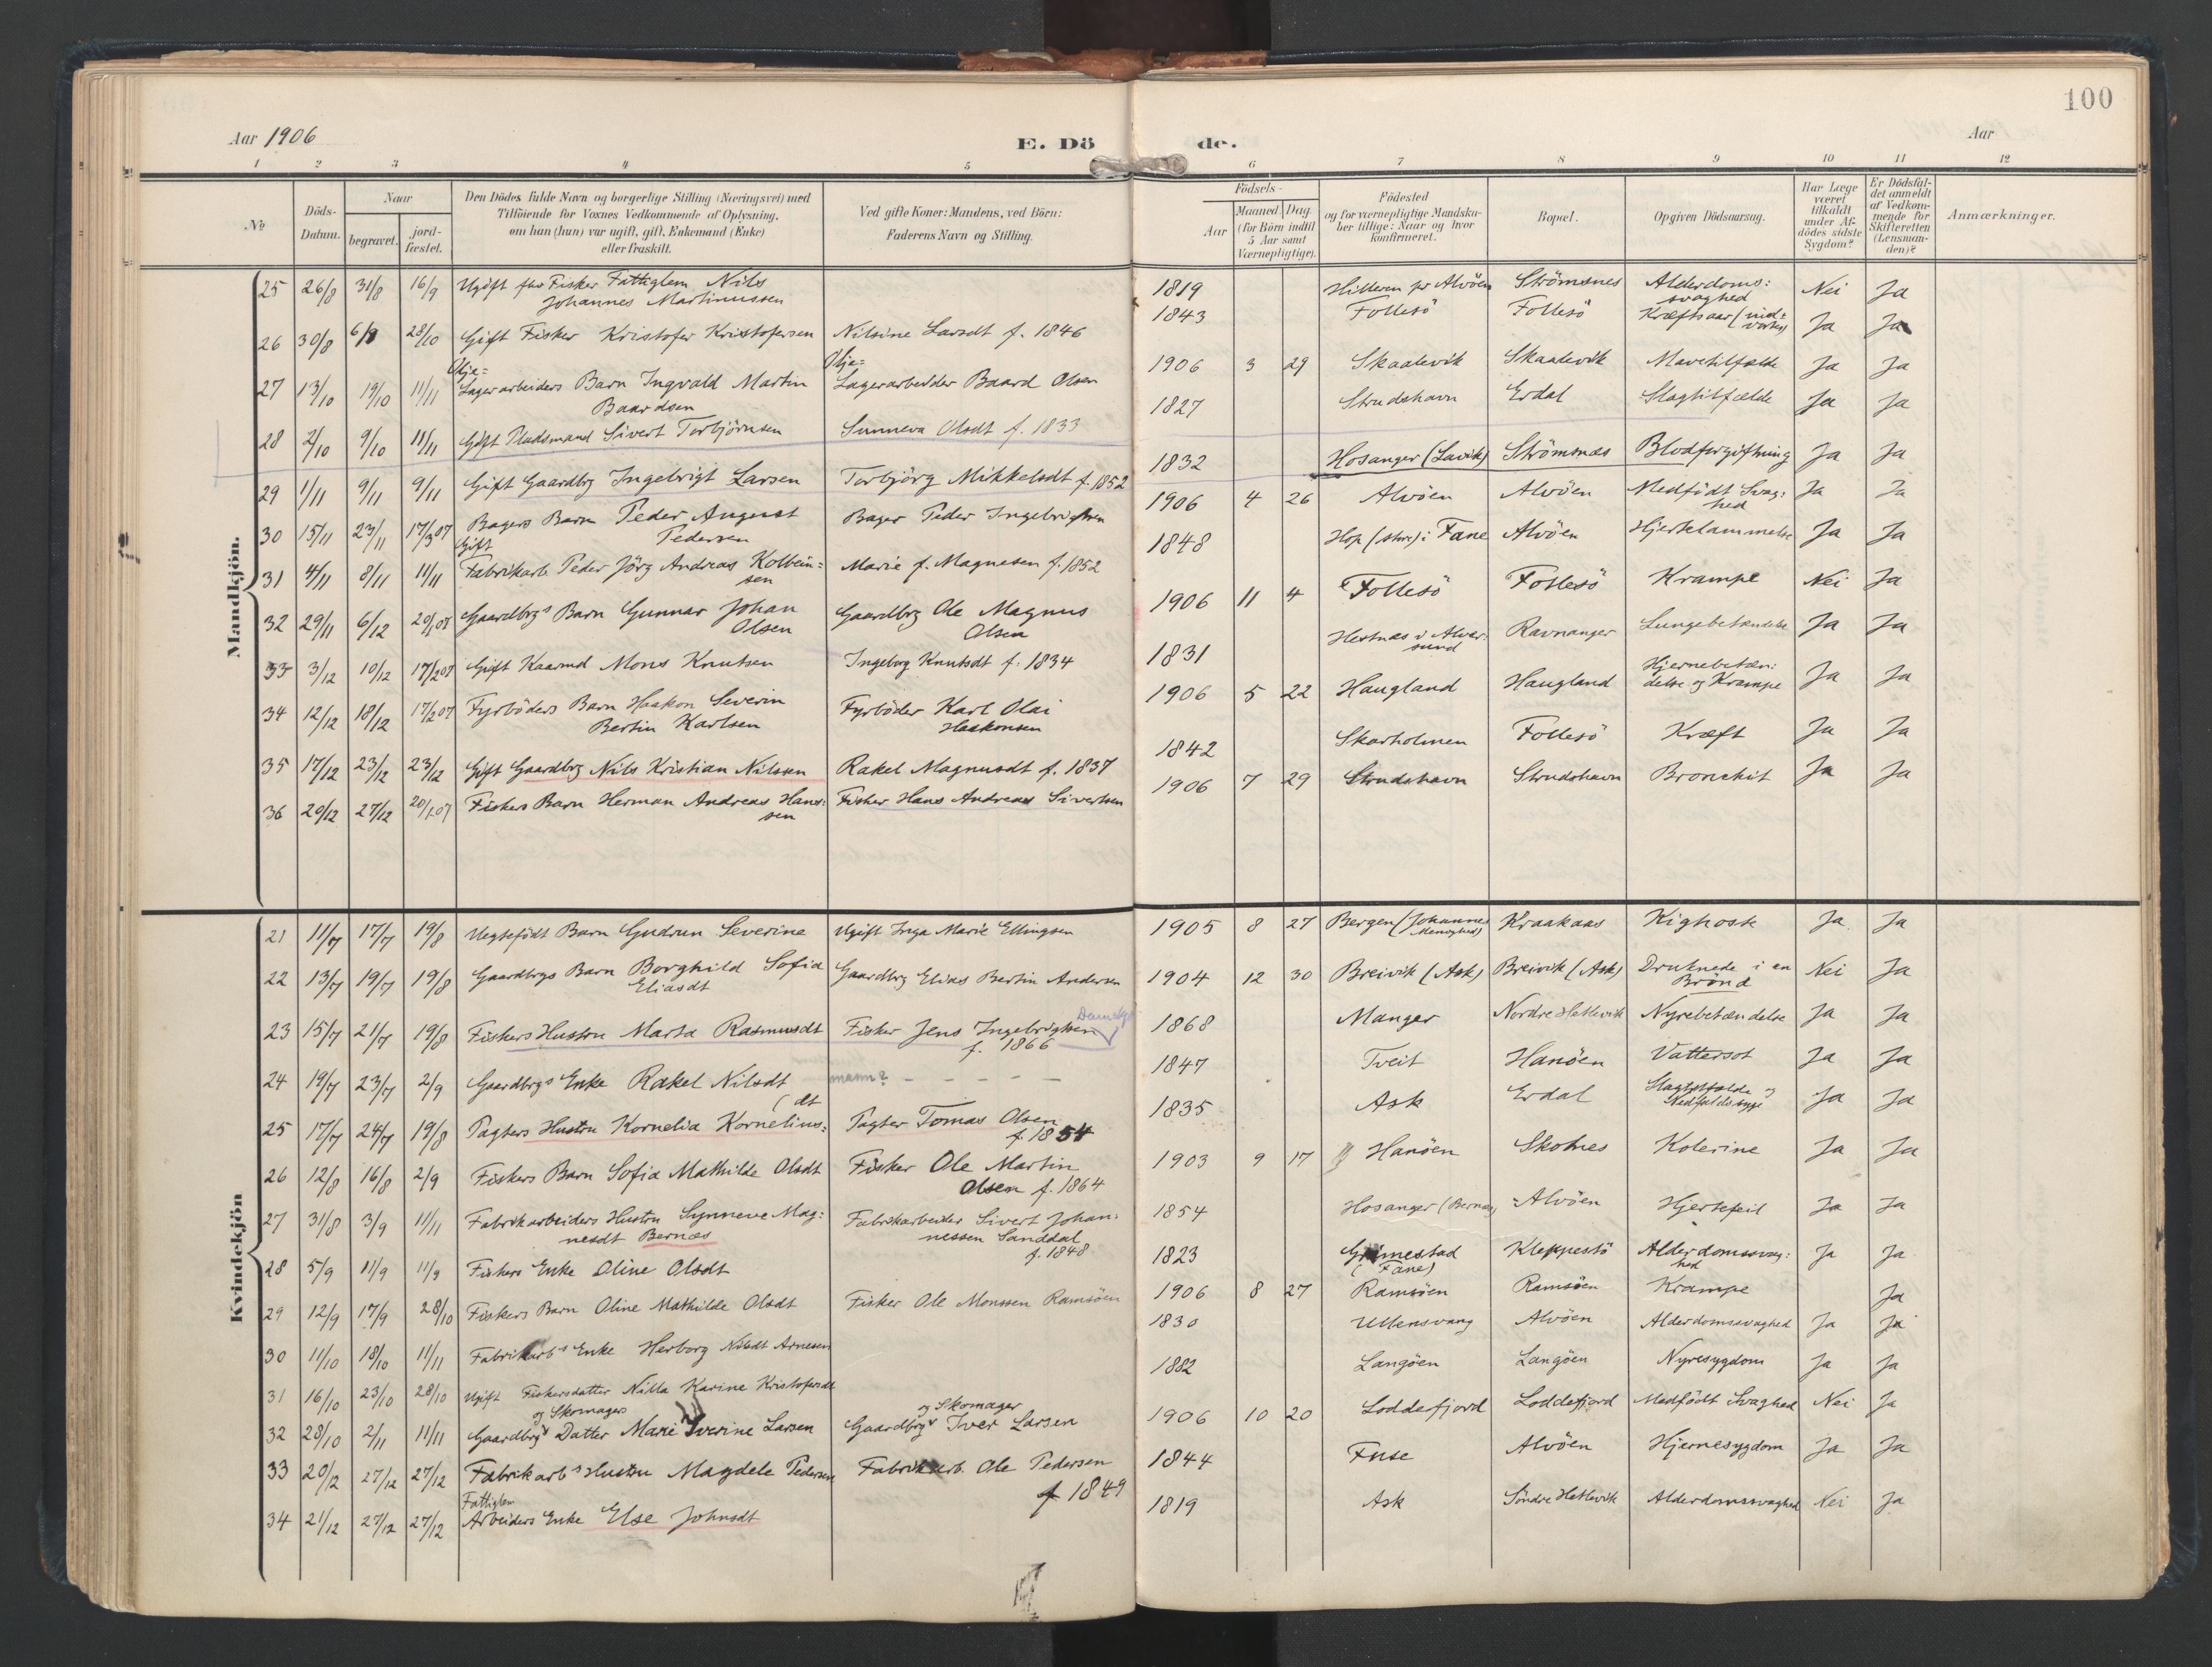 100
Aar 1906
E. Dö
de.
Aar
1 2 3 4 5 6 7 8 9 10 11 12
No
Döds-Datum.
Naar
begravet.
jord-fæstet.
Den Dödes fulde Navn og borgerlige Stilling (Næringsvei) med
Tilföiende for Voxnes Vedkommende af Oplysning,
om han (hun) var ugift, gift, Enkemand (Enke)
eller fraskilt.
Ved gifte Koner: Mandens, ved Börn:
Faderens Navn og Stilling.
Födsels-
Aar
Maaned Dag
(for Börn indtil
5 Aar samt
Værnepligtige).
Födested
og for værnepligtige Mandska-
ber tillige: Naar og hvor
konfirmeret.
Bopæl.
Opgiven Dödsaarsag.
Har Læge
været
tilkaldt
under Af-
dödes sidste
Sygdom?
Er Dödsfal-
det anmeldt
af Vedkom-
mende for
Skifteretten
(Lensman-
den)?
Anmærkninger.
Mandkjön.
25 26/8 31/8 16/9 Ugift Fisker Fattiglem Nils
Johannes Martinussen
1819 Hilleren pr Alvöen Strömsnes Alderdoms:
svaghed Nei Ja
26 30/8 6/9 28/10 Gift Fisker Kristofer Kristofersen Nilsine Larsdt f. 1846
1843 Follesö Follesö Kræftsaar Ja Ja
27 13/10 19/10 11/11 Olje=
Lagerarbeiders Barn Ingvald Martin
Baardsen
Olje=
Lagerarbeider Baard Olsen
1906 3 29 Skaalevik Skaalevik Mavetilfælde Ja Ja
28 2/10 9/10 11/11 Gift Pladsmand Sivert Torbjörnsen Sunneva Olsdt f. 1833
1827 Strudshavn Erdal Slagtilfælde Ja Ja
29 1/11 9/11 9/11 Gift Gaardbrg Ingebrigt Larsen Torbjörg Mikkelsdt f. 1852
1832 Hosanger (Lavik) Strömsnæs Blodforgiftning Ja Ja
30 15/11 23/11 17/3 07 Bagers Barn Peder August
Pedersen
Bager Peder Ingebrigtsen
1906 4 26 Alvöen Alvöen Medfödt Svag:
hed Ja Ja
31 4/11 8/11 11/11 Gift
Fabrikarb. Peder Jörg Andreas Kolbein=
sen
Marie f. Magnesen f. 1852
1848 Hop i Fane Alvöen Hjertelammelse Ja Ja
32 29/11 6/12 20/1 07 Gaardbrgs Barn Gunnar Johan
Olsen
Gaardbrg Ole Magnus
Olsen
1906 11 4 Follesö Follesö Krampe Nei Ja
33 3/12 10/12 17/2 07 Gift Kaarmd Mons Knutsen Ingeborg Knutsdt f. 1834
1831 Hestnæs i Alver:
sund Ravnanger Lungebetændelse Ja Ja
34 12/12 18/12 17/2 07 Fyrböders Barn Haakon Severin
Bertin Karlsen
Fyrböder Karl Olai
Haakonsen
1906 5 22 Haugland Haugland Hjernebetæn:
delse og Krampe Ja Ja
35 17/12 23/12 23/12 Gift Gaardbrg Nils Kristian Nilssen Rakel Magnusdt f. 1837
1842 Skarholmen Follesö Kræft Ja Ja
36 20/12 27/12 20/1 07 Fiskers Barn Herman Andreas Hans:
sen
Fisker Hans Andreas Sivertsen
1906 7 29 Strudshavn Strudshavn Bronchit Ja Ja
Kvindekjön
21 11/7 17/7 19/8 Uegtefödt Barn Gudrun Severine Ugift Inga Marie Ellingsen
1905 8 27 Bergen (Johannes
Menighed) Kraakaas Kighoste Ja Ja
22 13/7 19/7 19/8 Gaardbrgs Barn Borghild Sofia
Eliasdt
Gaardbrg Elias Bertin Andersen
1904 12 30 Breivik (Ask) Breivik (Ask) Druknede i en
Brönd Nei Ja
23 15/7 21/7 19/8 Fiskers Hustru Marta Rasmusdt Fisker Jens Ingebrigtsen
f. 1866
1868 Manger Nordre Hetlevik Nyrebetændelse Ja Ja
24 19/7 23/7 2/9 Gaardbrgs Enke Rakel Nilsdt mann? - - - - -
1847 Tveit Hanöen Vattersot Ja Ja
25 17/7 24/7 19/8 Pagters Hustru Kornelia Kornelius=
(dt
Pagter Tomas Olsen
f. 1854
1835 Ask Erdal Slagtilfælde og
Nedfaldssyge Ja Ja
26 12/8 16/8 2/9 Fiskers Barn Sofia Mathilde Olsdt Fisker Ole Martin
Olsen f. 1864
1903 9 17 Hanöen Skolnes Kolerine Ja Ja
27 31/8 3/9 11/11 Fabrikarbeiders Hustru Synneve Mag:
nesdt Bernæs
Fabrikarbeider Sivert Johan:
nessen Sanddal
f. 1848
1854 Hosanger (Bernæs) Alvöen Hjertefeil Ja Ja
28 5/9 11/9 11/9 Fiskers Enke Oline Olsdt
1823 Grimestad
(Fane) Kleppestö Alderdomssvag:
hed Ja Ja
29 12/9 17/9 28/10 Fiskers Barn Oline Mathilde Olsdt Fisker Ole Monssen Ramsöen
1906 8 27 Ramsöen Ramsöen Krampe Ja
30 11/10 18/10 11/11 Fabrikarbs Enke Herborg Nilsdt Arnesen
1830 Ullensvang Alvöen Alderdomssvaghed Ja Ja
31 16/10 23/10 28/10 Ugift Fiskersdatter Nilla Karine Kristofersdt
1882 Langöen Langöen Nyresygdom Ja Ja
32 28/10 2/11 11/11 og Skomagers
Gaardbrgs Datter Marie Iverine Larsen
og Skomager
Gaardbrgr Iver Larsen
1906 10 20 Loddefjord Loddefjord Medfödt Svaghed Nei Ja
33 20/12 27/12 27/12 Fabrikarbs Hustru Magdele Pedersen Fabrikarb. Ole Pedersen
f 1849
1844 Fuse Alvöen Hjernesygdom Ja Ja
34 21/12 27/12 27/12 Fattiglem
Arbeiders Enke Else Johnsdt
1819 Ask Söndre Hetlevik Alderdomssvaghed Nei Ja